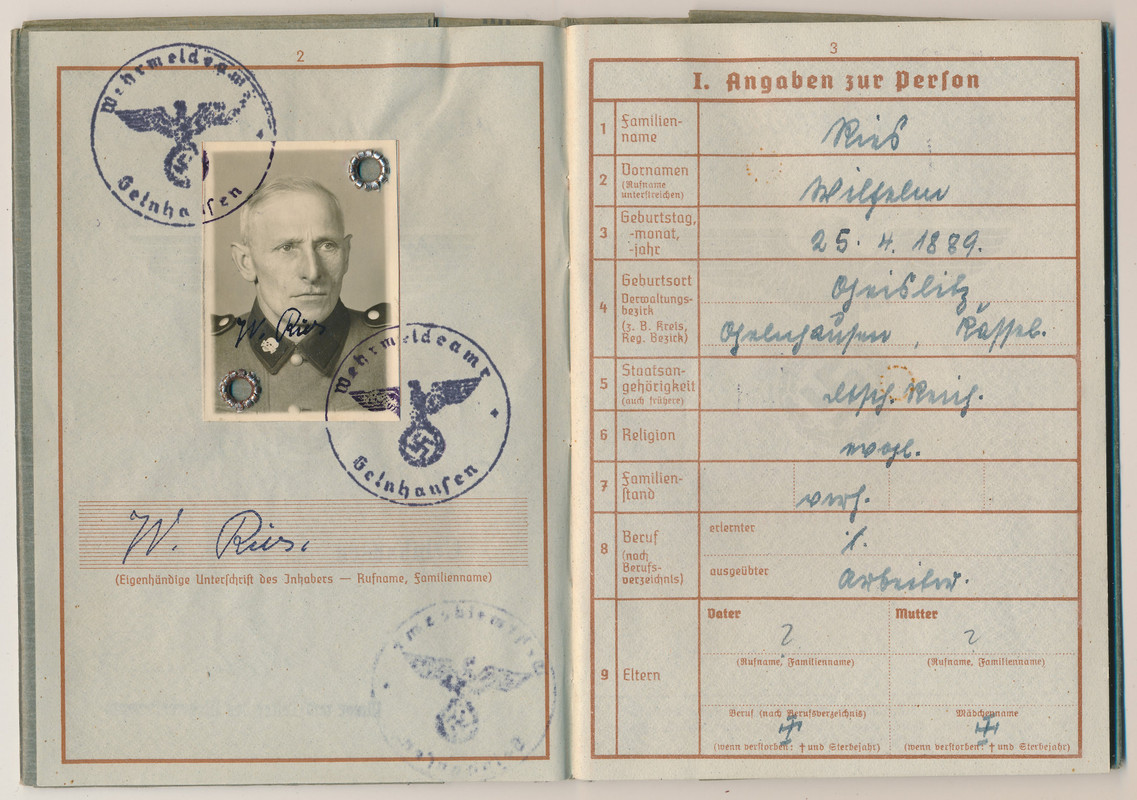 2
Wehrmeldeamt
Gelnhausen
W. Ries
Wehrmeldeamt
Gelnhausen
W. Ries.
(Eigenhändige Unterschrift des Inhabers — Rufname, Familienname)
3
I. Angaben zur Person
1 Familien-
name
Ries
2 Vornamen
(Rufname
unterstreichen)
Wilhelm
3 Geburtstag,
-monat,
-jahr
25. 4. 1889.
4 Geburtsort
Verwaltungs-
bezirk
(z. B. Kreis,
Reg. Bezirk)
Geislitz
Gelnhausen, Kassel.
5 Staatsan-
gehörigkeit
(auch frühere)
dtsch. Reich.
6 Religion
evgl.
7 Familien-
stand
verh.
8 Beruf
(nach
Berufs-
verzeichnis)
erlernter
ausgeübter
Arbeiter.
9 Eltern
Vater
Mutter
?
?
(Rufname, Familienname)
(Rufname, Familienname)
Beruf (nach Berufsverzeichnis)
Mädchenname
(wenn verstorben: † und Sterbejahr)
(wenn verstorben: † und Sterbejahr)